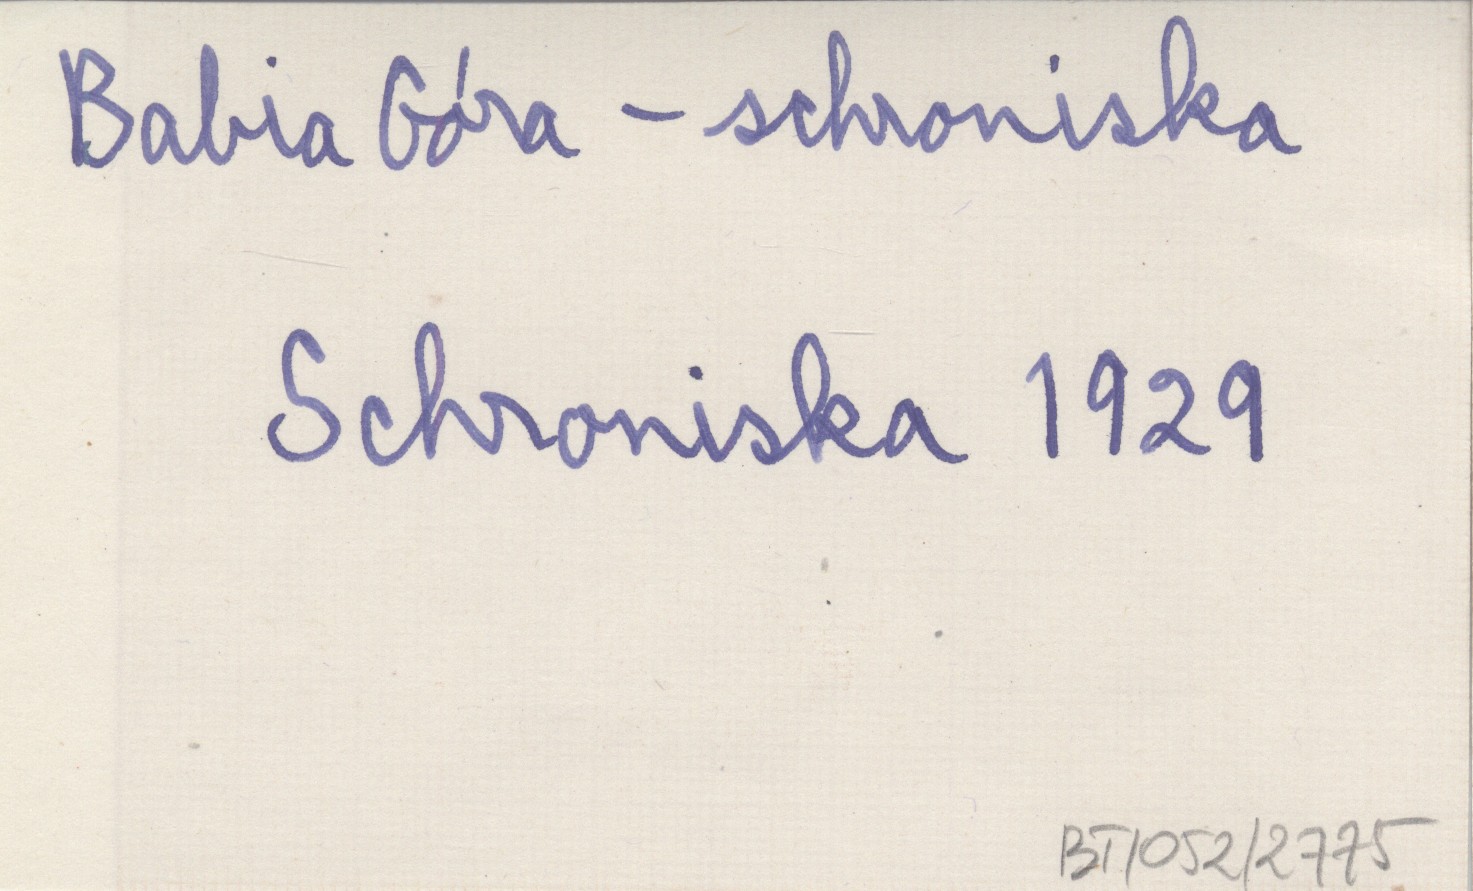 Babia Góra - schroniska
Schroniska 1929
BT/052/2775